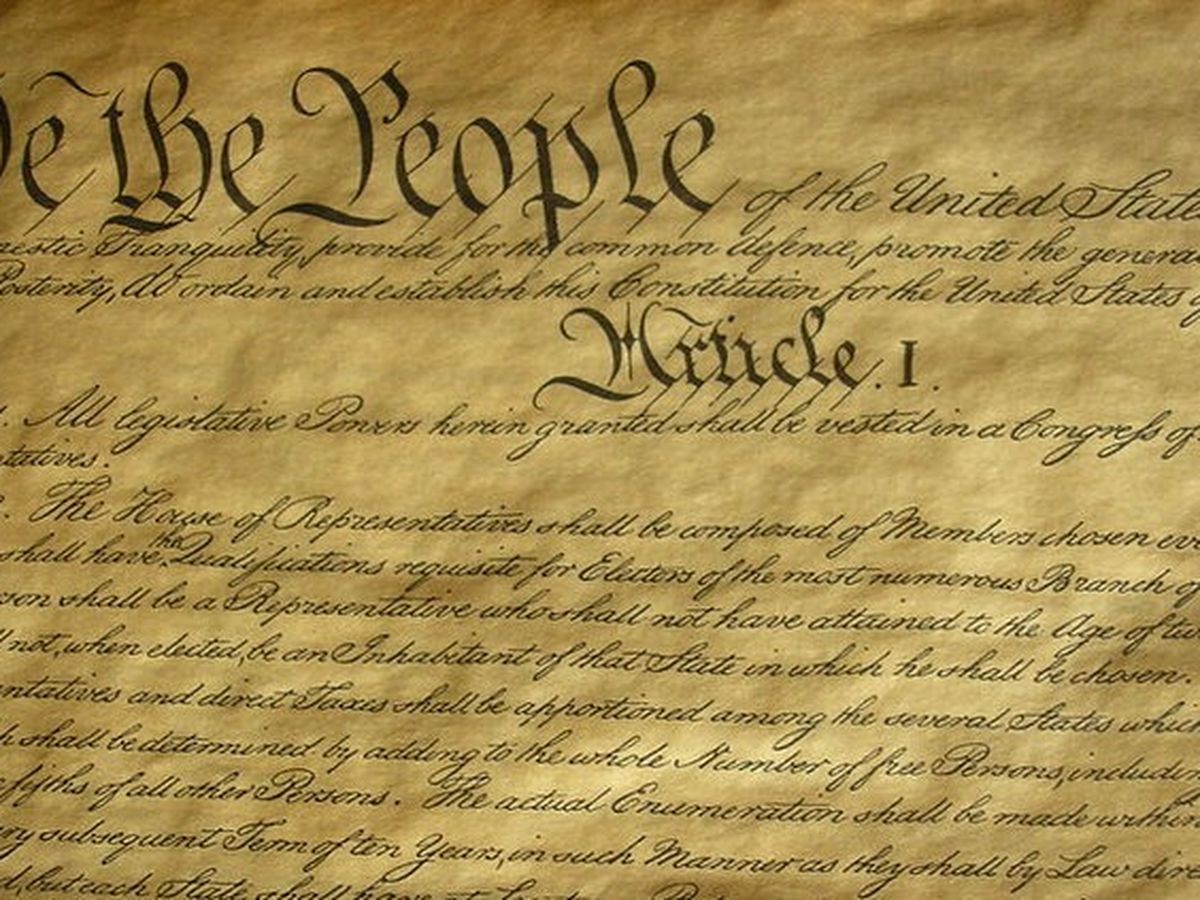 We the People of the United State
nestic Tranquility, provide for the common defence, promote the genera
Posterity, do ordain and establish this Constitution for the United States of
Article. I.
1. All legislative Powers herein granted shall be vested in a Congress of
ntatives.
2. The House of Representatives shall be composed of Members chosen eve
shall have the Qualifications requisite for Electors of the most numerous Branch of
rson shall be a Representative who shall not have attained to the Age of tw
l not, when elected, be an Inhabitant of that State in which he shall be chosen.
entatives and direct Taxes shall be apportioned among the several States which
h shall be determined by adding to the whole Number of free Persons, includin
e fifths of all other Persons. The actual Enumeration shall be made within
ry subsequent Term of ten Years, in such Manner as they shall by Law dire
d, but each State shall have at Least